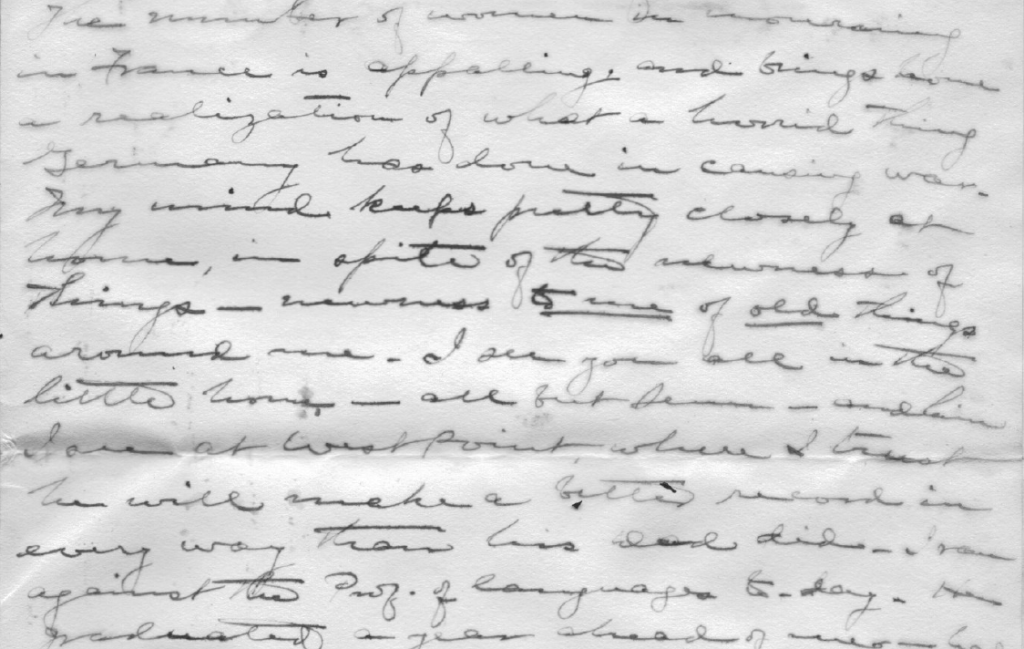 The number of women in mourning
in France is appalling, and brings home
a realization of what a horrid thing
Germany has done in causing war.
My mind keeps pretty closely at
home, in spite of the newness of
things — newness to me of old things
around me. I see you all in the
little home — all but — and him
I see at West Point, where I trust
he will make a better record in
every way than his dad did. I ran
against the Prof. of languages to-day. He
graduated a year ahead of me —